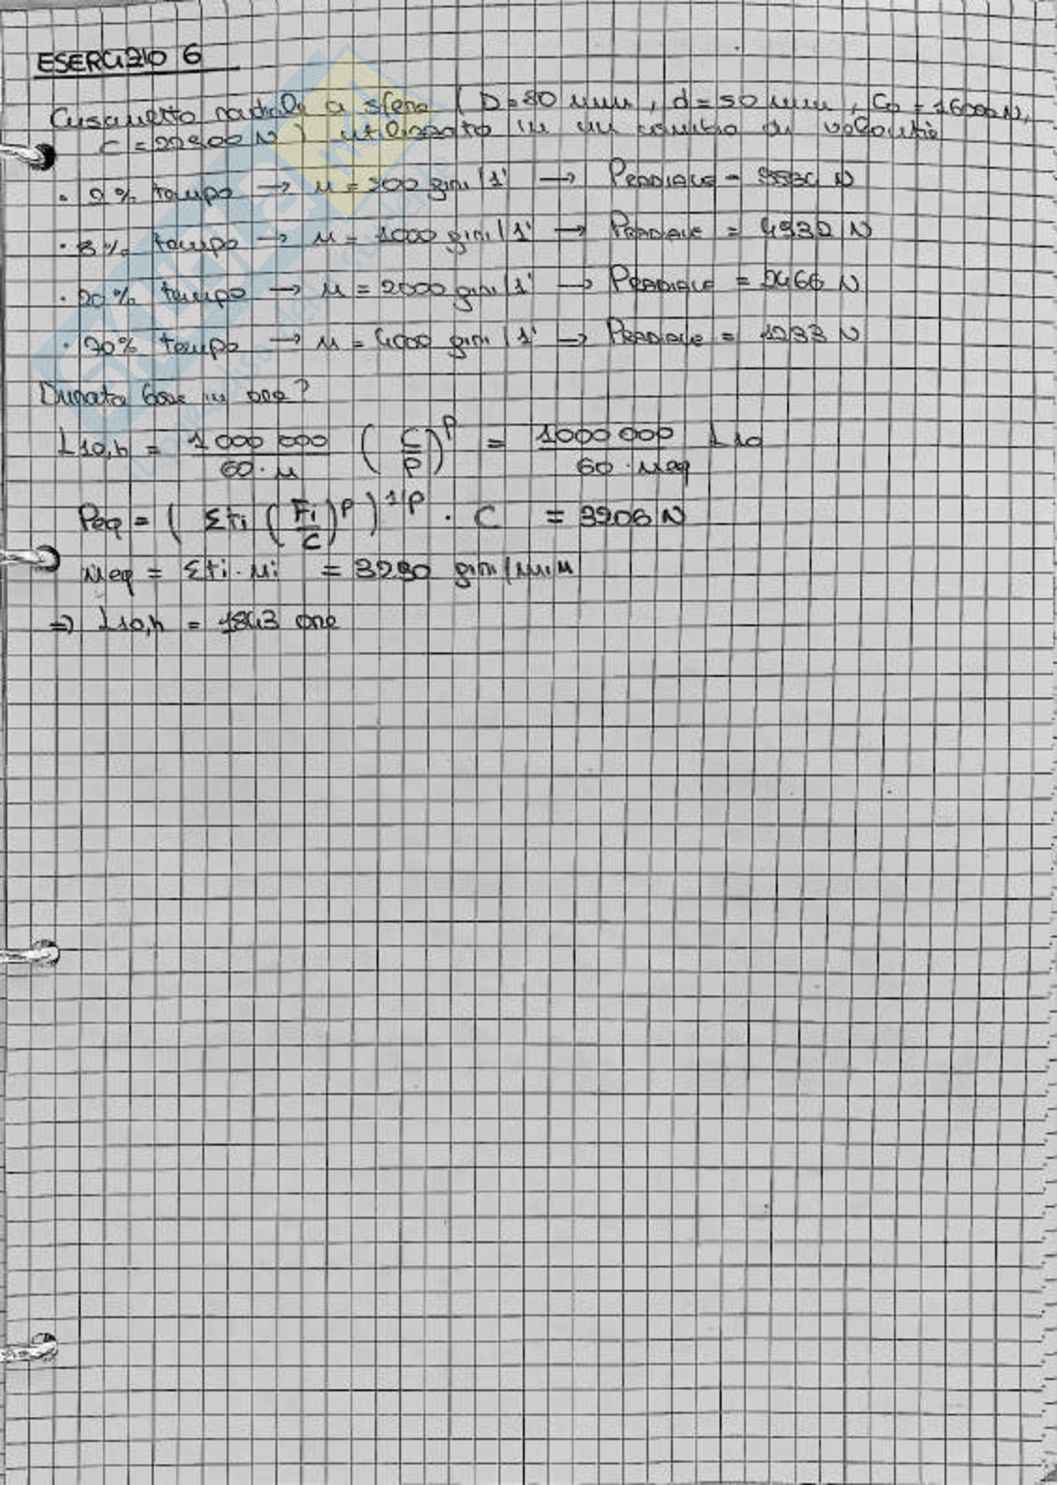 ESERCIZIO 6
Cuscinetto radiale a sfere ( D=80 mm, d=50 mm, C0 = 16000 N,
C = 22900 N ) utilizzato in un cambio di velocità
· 2% tempo → n = 500 giri/1' → Pradiale =
· 8% tempo → n = 1000 giri/1' → Pradiale = 4932 N
· 20% tempo → n = 2000 giri/1' → Pradiale = 2466 N
· 70% tempo → n = 4000 giri/1' → Pradiale = 1233 N
Durata base in ore?
L10,h = 1000 000 / 60·n (C/P)^p = 1000 000 / 60·neq L10
Peq = ( Σti (Fi/C)^p )^1/p · C = 3206 N
neq = Σti·ni = 3290 giri/min
⇒ L10,h = 1843 ore